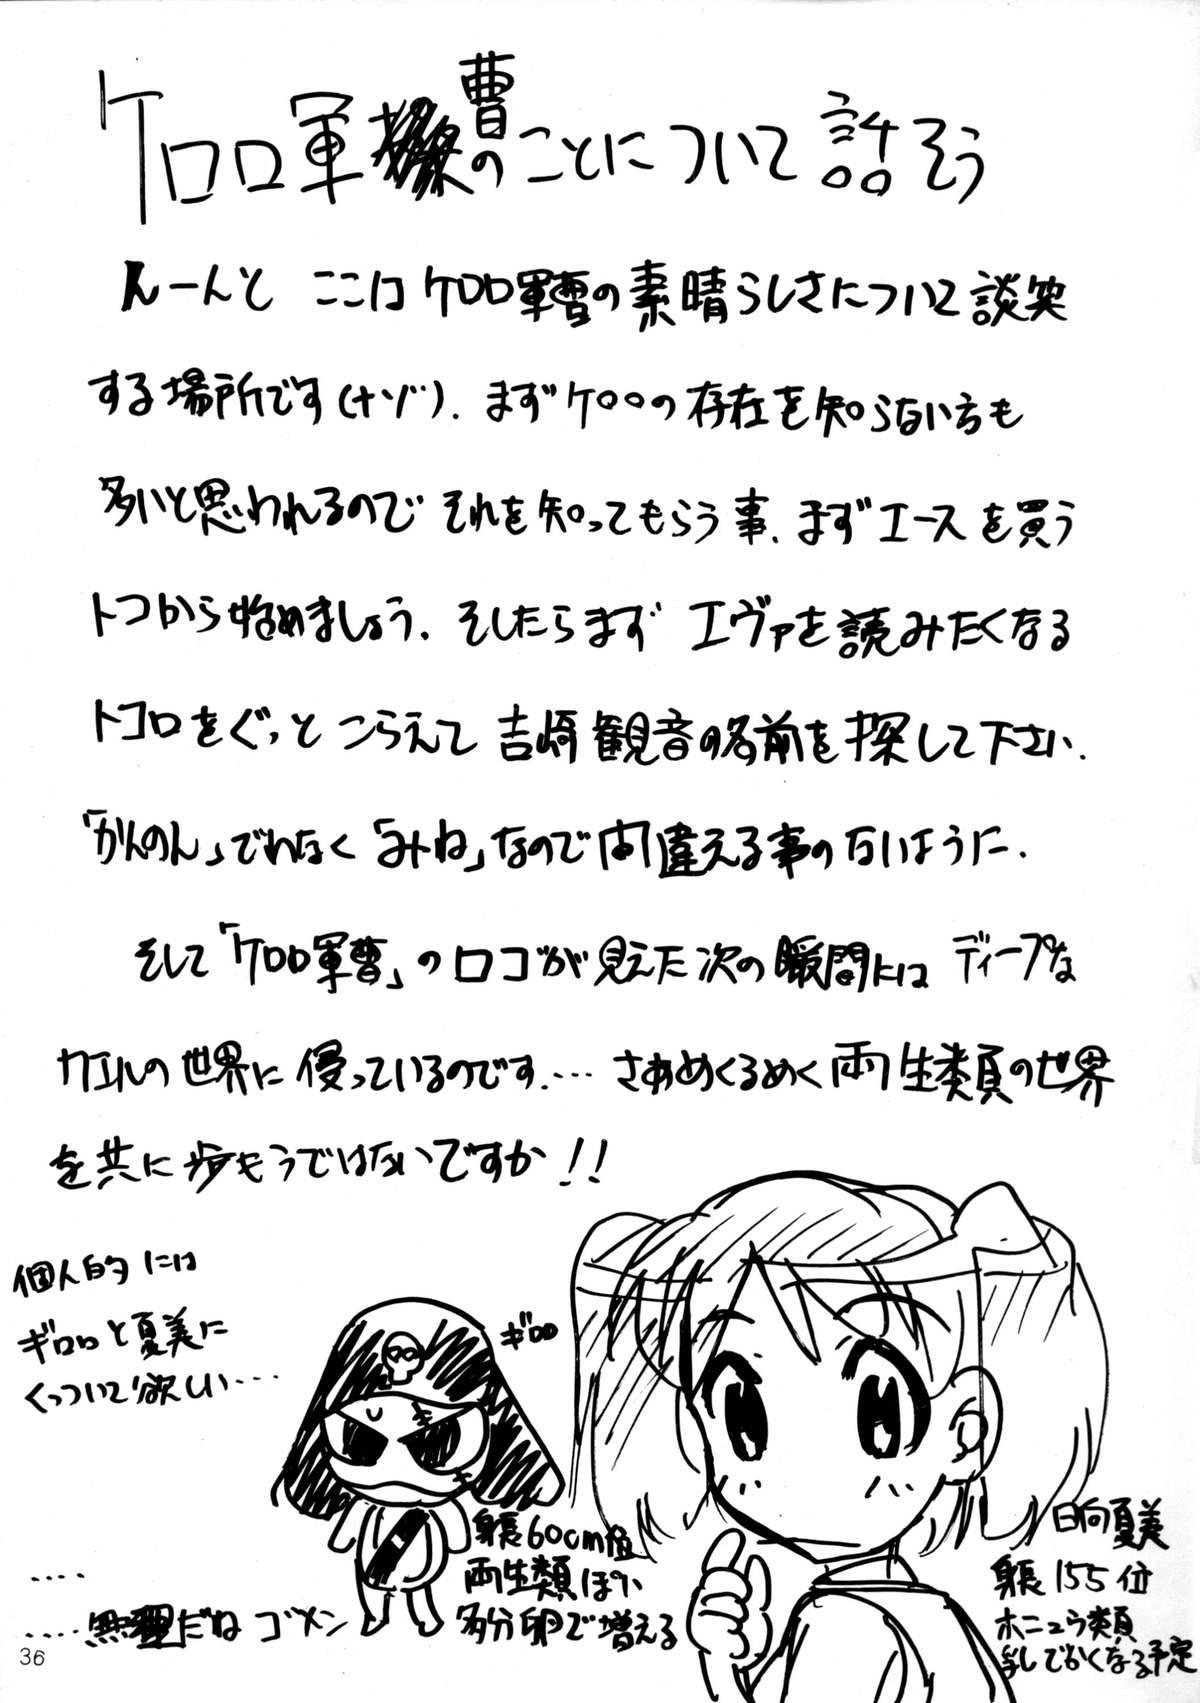 ケロロ軍曹のことについて話そう
んーんと ここはケロロ軍曹の素晴らしさについて談笑
する場所です(ナゾ). まずケロロの存在を知らない方も
多いと思われるのでそれを知ってもらう事. まずエースを買う
トコから始めましょう. そしたらまず エヴァを読みたくなる
トコロをぐっと こらえて 吉崎観音の名前を探して下さい.
「かんのん」でわなく「みね」なので間違える事のないように.
そして「ケロロ軍曹」のロゴが見えた次の瞬間には ディープな
カエルの世界に侵っているのです.… さあめくるめく両生類の世界
を共に歩もうではないですか!!
個人的には
ギロロと夏美に
くっついて欲しい…
ギロロ
身長60cm位
両生類ぽい
多分卵で増える
日向夏美
身長155位
ホニュウ類
乳でかくなる予定
‥‥
‥‥無理だね ゴメン
36